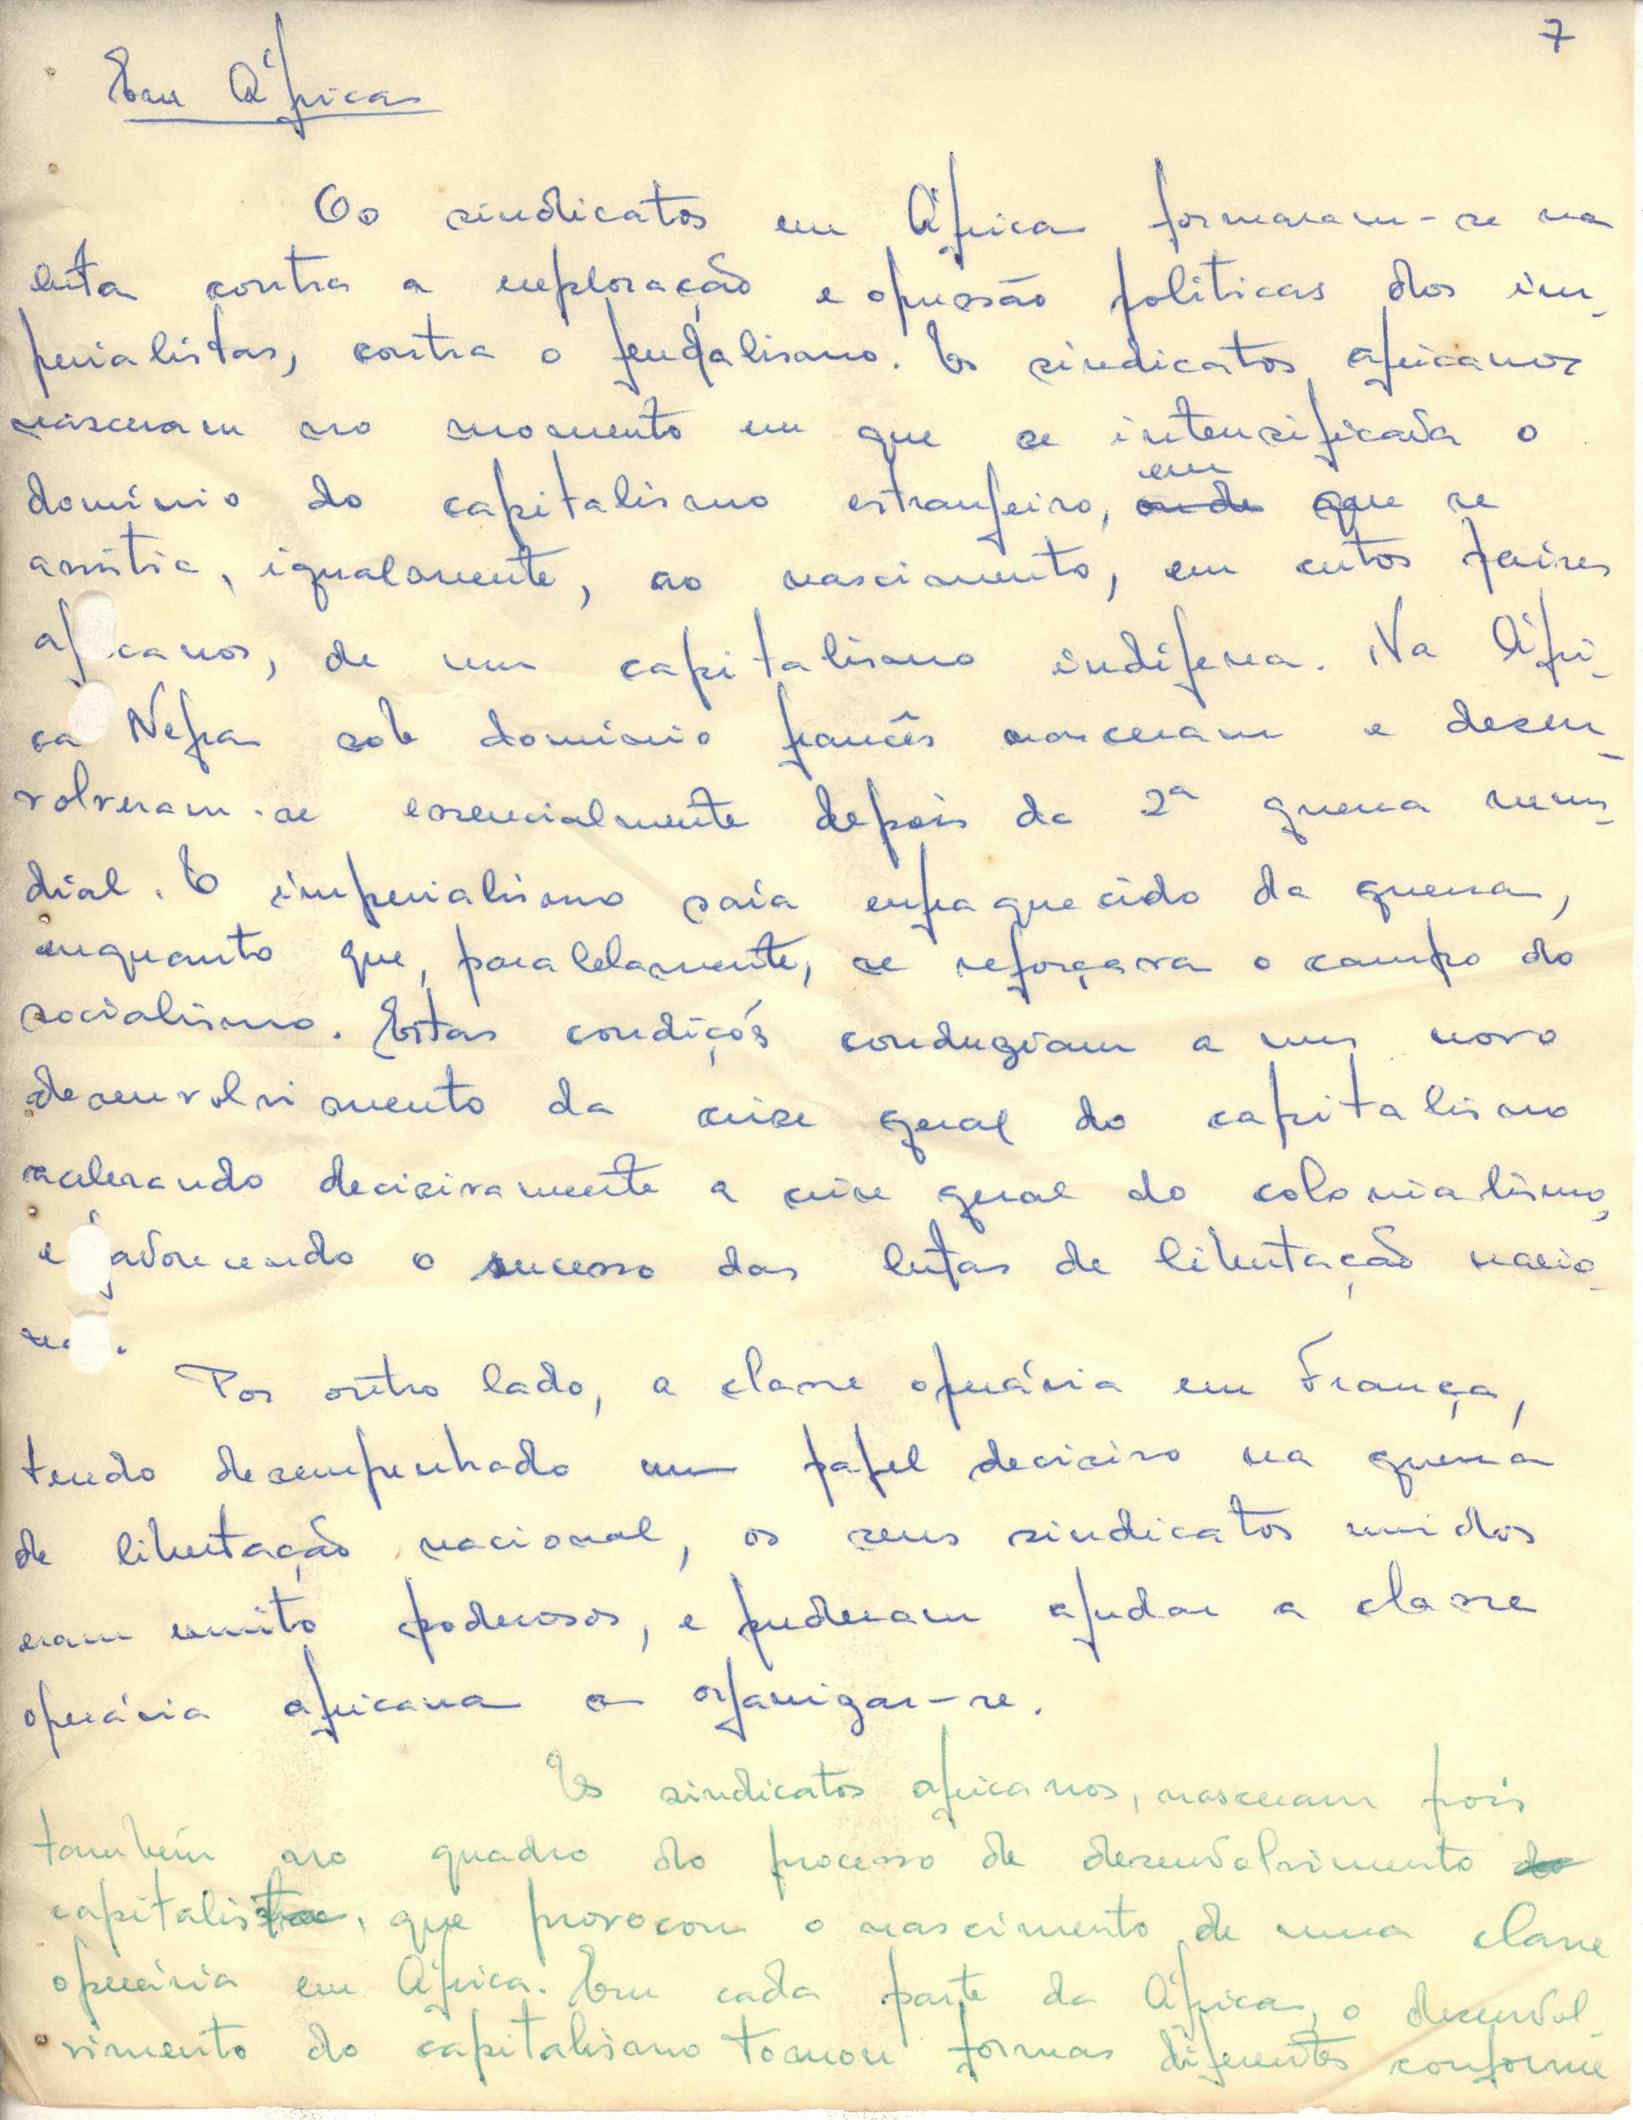 7
Em África
Os sindicatos em África formaram-se na
luta contra a exploração e opressão políticas dos im-
perialistas, contra o feudalismo. Os sindicatos africanos
nasceram no momento em que se intensificava o
em
domínio do capitalismo estrangeiro, onde que se
assistia, igualmente, ao nascimento, em certos países
af canos, de um capitalismo indígena. Na Áfri-
ca Negra sob domínio francês nasceram e desen-
volveram-se essencialmente depois da 2ª guerra mun-
dial. O imperialismo saía enfraquecido da guerra,
enquanto que, paralelamente, se reforçava o campo do
socialismo. Estas condições conduziam a um novo
desenvolvimento da crise geral do capitalismo
acelerando decisivamente a crise geral do colonialismo,
e favorecendo o sucesso das lutas de libertação nacio-
na .
Por outro lado, a classe operária em França,
tendo desempenhado um papel decisivo na guerra
de libertação nacional, os seus sindicatos unidos
eram muito poderosos, e puderam ajudar a classe
operária africana a organizar-se.
Os sindicatos africanos, nasceram pois
também no quadro do processo de desenvolvimento do
capitalista, que provocou o nascimento de uma classe
operária em África. Em cada parte da África, o desenvol-
vimento do capitalismo tomou formas diferentes conforme